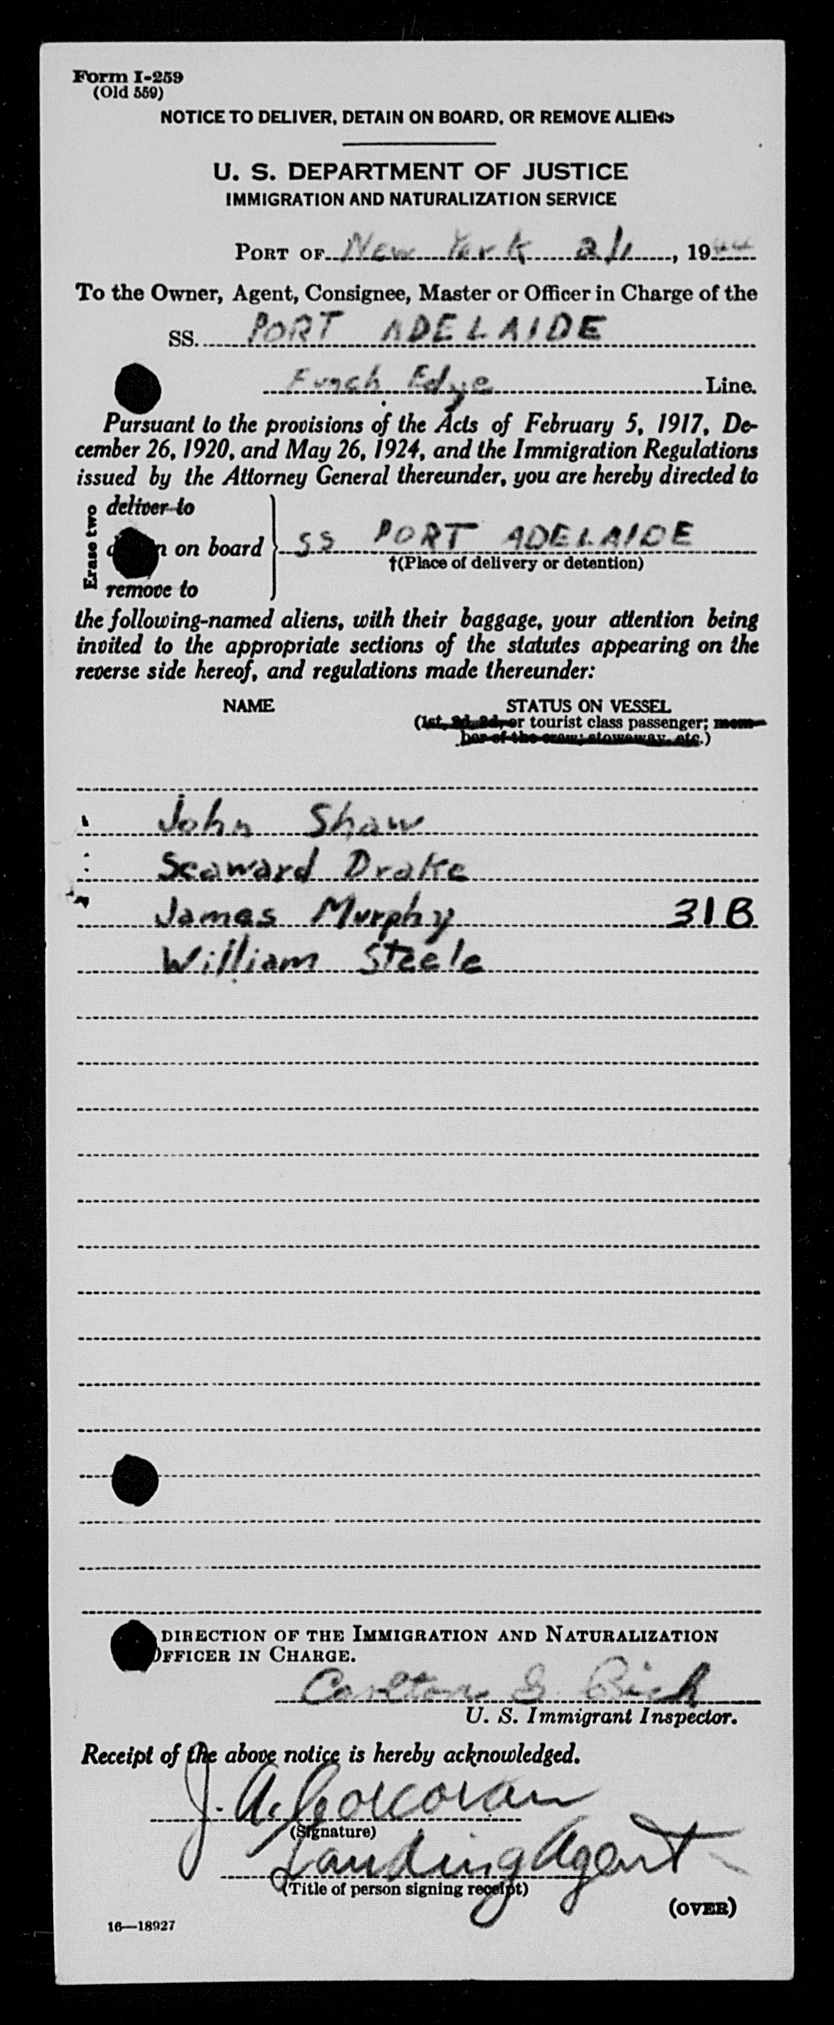 Form I-259
(Old 559)
NOTICE TO DELIVER, DETAIN ON BOARD, OR REMOVE ALIENS
U. S. DEPARTMENT OF JUSTICE
IMMIGRATION AND NATURALIZATION SERVICE
PORT OF New York 2/1, 1944
To the Owner, Agent, Consignee, Master or Officer in Charge of the
SS. PORT ADELAIDE
Funch Edye Line.
Pursuant to the provisions of the Acts of February 5, 1917, De-
cember 26, 1920, and May 26, 1924, and the Immigration Regulations
issued by the Attorney General thereunder, you are hereby directed to
Erase two
deliver to
on board SS PORT ADELAIDE
†(Place of delivery or detention)
remove to
the following-named aliens, with their baggage, your attention being
invited to the appropriate sections of the statutes appearing on the
reverse side hereof, and regulations made thereunder:
NAME STATUS ON VESSEL
(1st, 2d, 3d, or tourist class passenger; mem-
ber of the crew; stowaway, etc.)
John Shaw
Seaward Drake
James Murphy 31B
William Steele
DIRECTION OF THE IMMIGRATION AND NATURALIZATION
OFFICER IN CHARGE.
Carlton G. Rich
U. S. Immigrant Inspector.
Receipt of the above notice is hereby acknowledged.
J. A. Corcoran
(Signature)
Landing Agent
(Title of person signing receipt)
(OVER)
16—18927